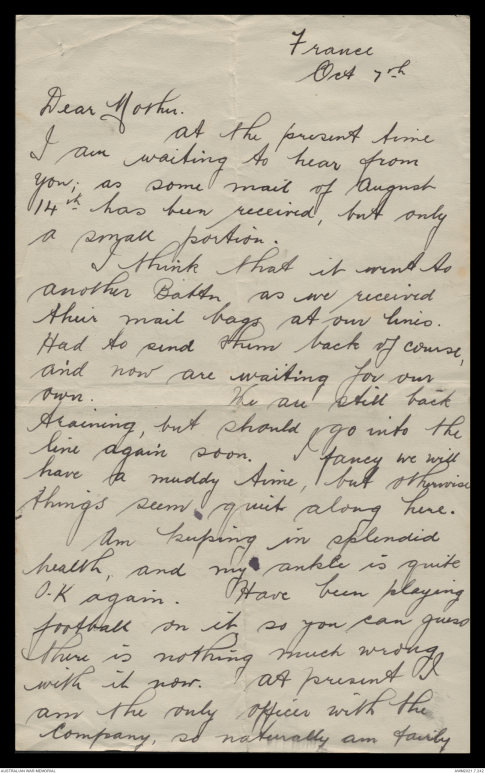 France
Oct 7th
Dear Mother.
at the present time
I am waiting to hear from
you; as some mail of August
14th has been received, but only
a small portion.
I think that it went to
another Battn, as we received
their mail bags at our lines.
Had to send them back of course,
and now are waiting for our
own. We are still back
training, but should go into the
line again soon. I fancy we will
have a muddy time, but otherwise
things seem quiet along here.
Am keeping in splendid
health, and my ankle is quite
O.K again. Have been playing
football on it, so you can guess
there is nothing much wrong
with it now. At present I
am the only officer with the
Company, so naturally am fairly
AUSTRALIAN WAR MEMORIAL